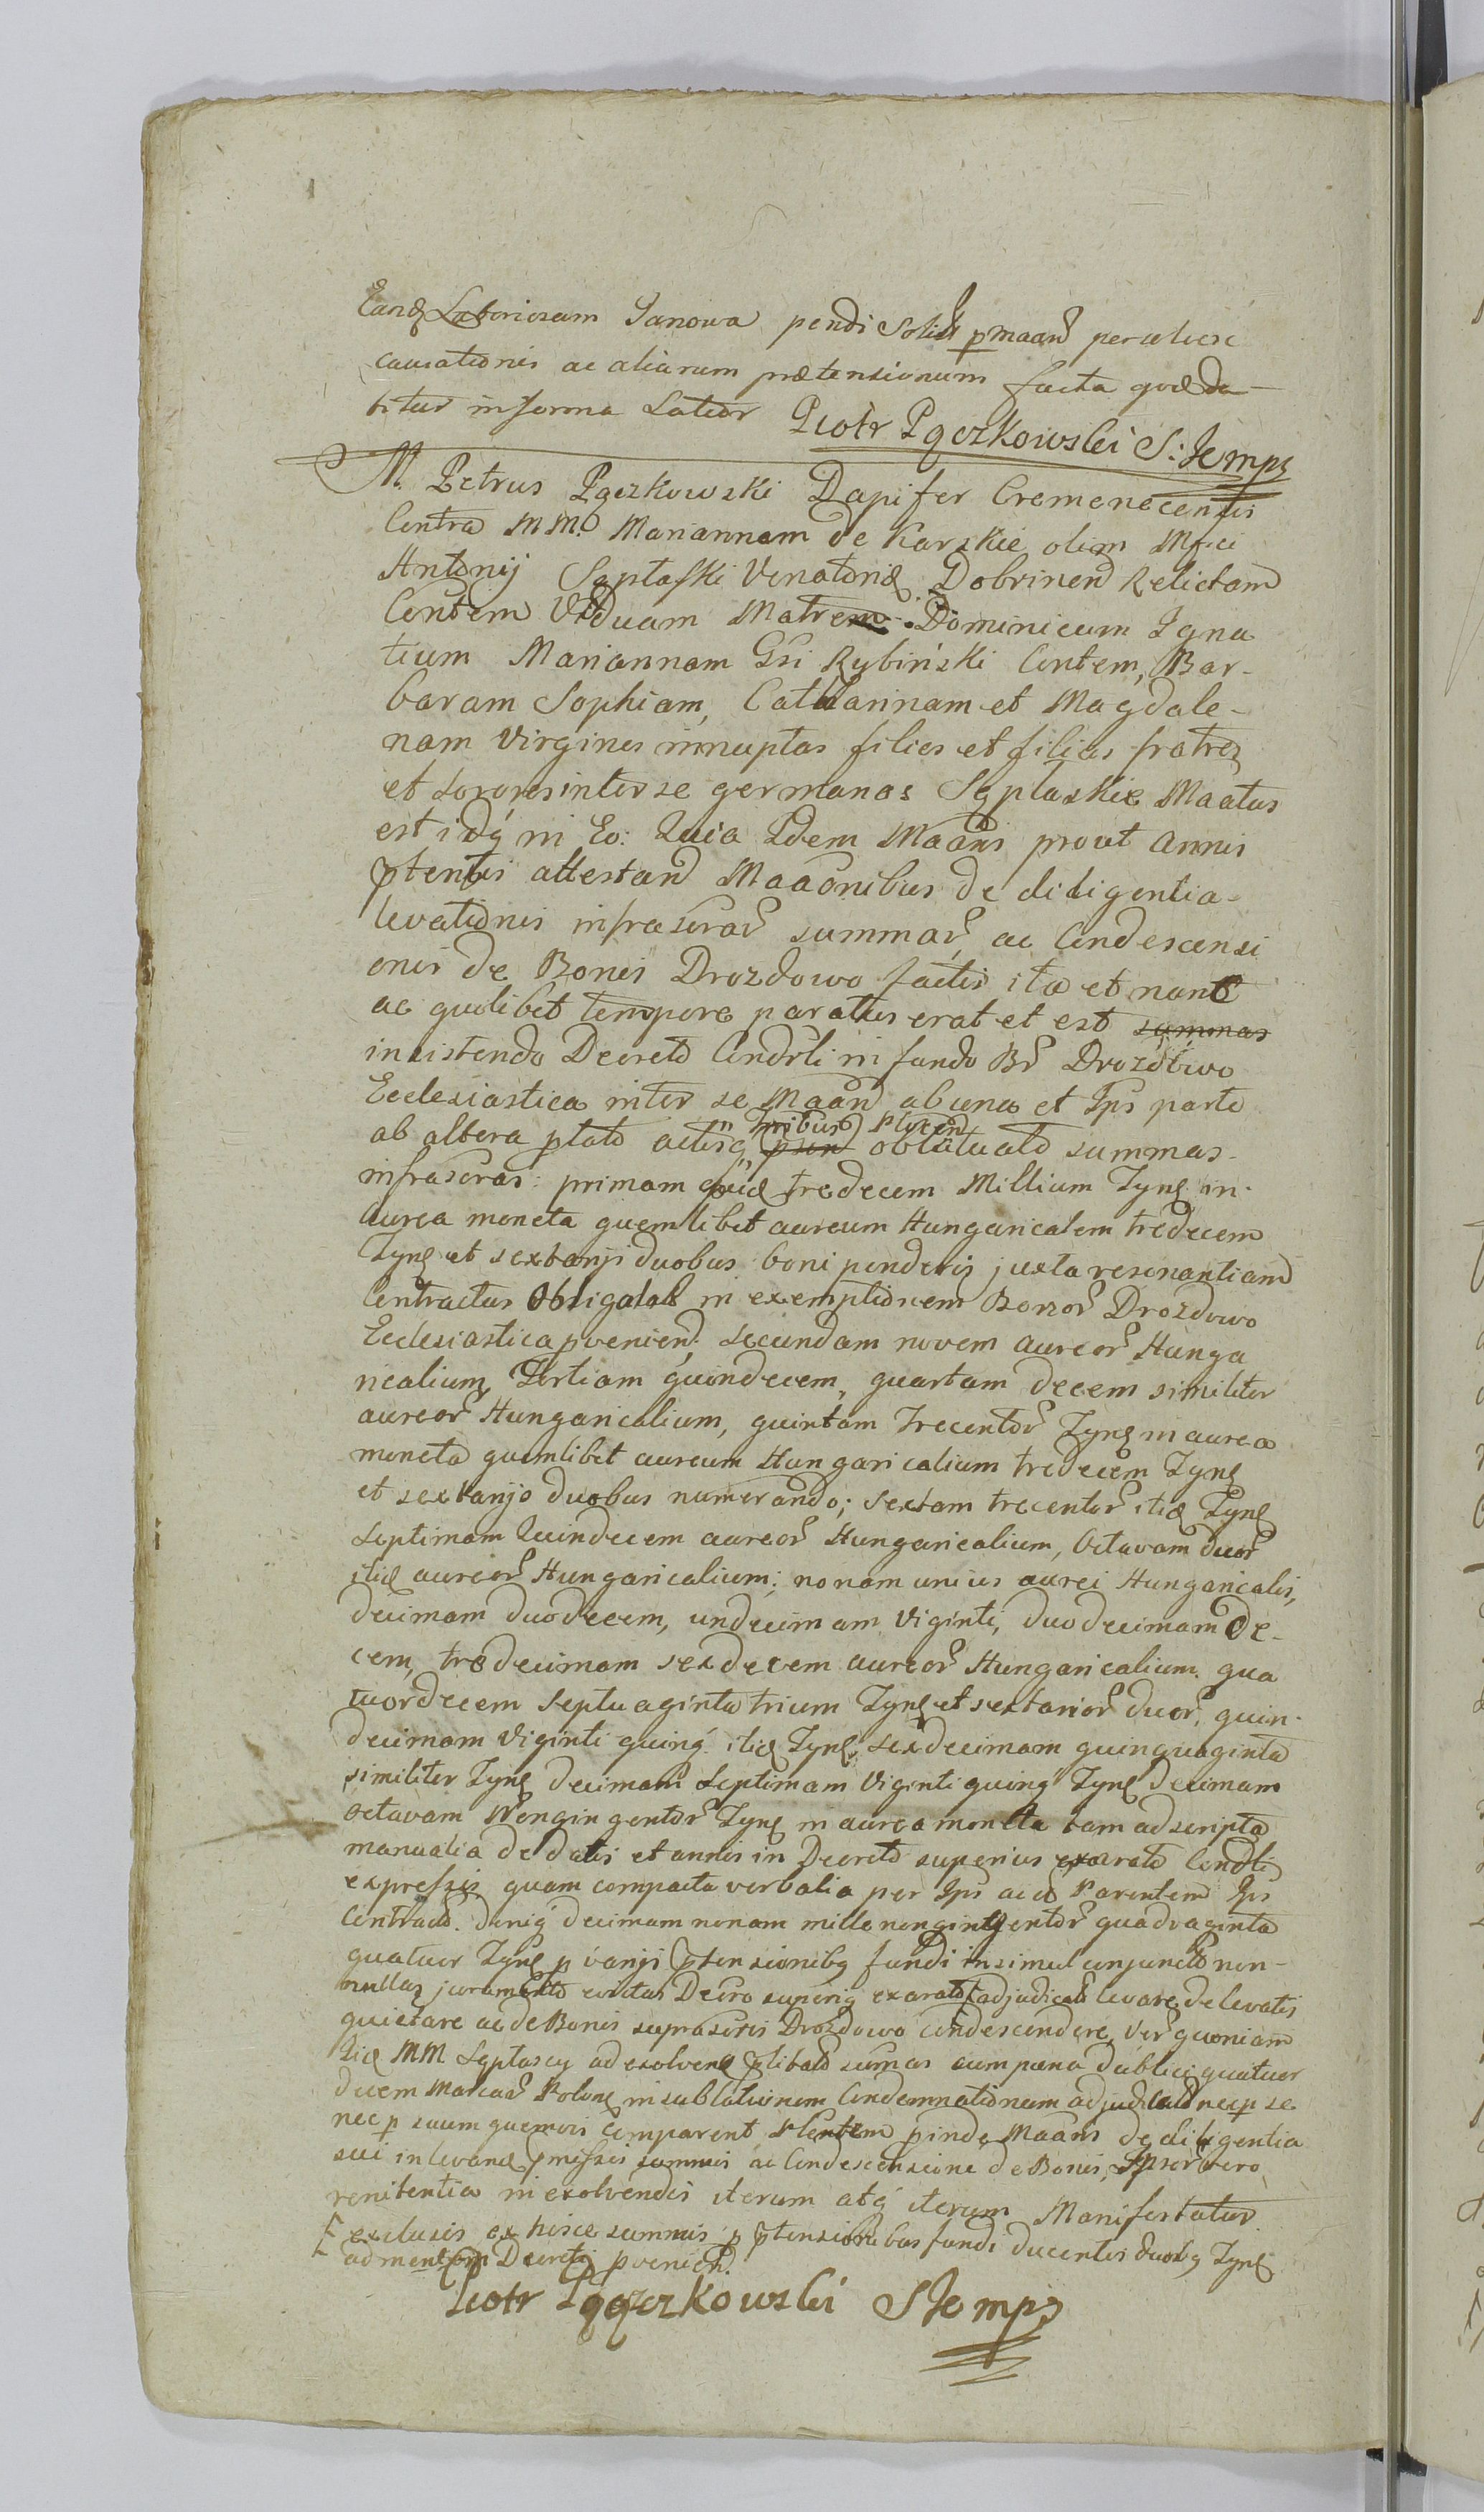 Eandem Laboriosam Janowa pendi Solit pmaand per
causationis ac aliarum prætensionum facta quæ da-
bitur in forma Latior Piotr Pączkowski S: K mps
M. Petrus Pączkowski Dapifer Cremenecensis
Contra MM. Mariannam de Karskie olim Mfici
Antonij Sęptaski Venatoris Dobrinen Relictam
Contem Viduam Matrem Dominicum Igna
tium Mariannam Gsi Rybiński Contem, Bar-
baram Sophiam, Catharinam et Magdale-
nam Virgines innuptas filios et filias fratres
et sorores inter se germanas Sęptaskie Maatus
est idq in Eo: Quia Idem Maans prout Annis
ptentis attestand Maaonibus de diligentia
levationis infrascrar summar, ac Condescensi
onis de Bonis Drozdowo factis ita et nunc
ac quolibet tempore paratus erat et est summas
insistendo Decreto Condrli in fundo Br Drozdowo
Ecclesiastica inter se Maand ab una et Ips parte
ab altera plato actisq Tribus oblatuato summas
infrascras: primam tredecem Millium Zynq in
aurea moneta quemlibet aureum Hungaricalem tredecem
Zynq et sextanji duobus boni ponderis juxta resonantiam
Contractus Obligator in exemptionem Bonor Drozdowo
Ecclesiastica pvenien: secundam novem aureor Hunga
ricalium, Tertiam quindecem, quartam decem similiter
aureor Hungaricalium, quintam Trecentor Zynq in aurea
moneta quemlibet aureum Hungaricalium tredecem Zynq
et sextanjo duobus numerando; sextam trecentor itid Zynq
Septimam Quindecem aureor Hungaricalium, Octavam duor
itid aureor Hungaricalium; nonam unius aurei Hungaricalis,
decimam duodecem, undecimam Viginti, duodecimam de-
cem, tredecimam sexdecem aureor Hungaricalium. qua
tuordecem Septuaginta trium Zynq et sextanior duor, quin-
decimam Viginti quinq itid Zynq, sexdecimam quinquaginta
similiter Zynq decimam Septimam Viginti quinq Zynq decimam
octavam Nongingentor Zynq in aurea moneta tam ad scripta
manualia de datis et annis in Decreto superius exarato Condti
expressis quam compacta verbalia per Ips ac Parentem Ips
Contracto. deniq decimam nonam mille nongintgentor quadraginta
quatuor Zynq p vanji ptensionibq fundi insimul conjuncto non-
nullas juramento Decro superiq exarato adjudicato levare de levatis
quietare ac de Bonis suprascritis Drozdowo condescendere, Ver quoniam
MM Sęptascy ad exolvend plibato sumas cum pæna dublici quatuor
decem Marcar Polonq in sublationem Condemnationum adjudicato nec p se
nec p suum quemvis comparent Plentem pinde Maans de diligentia
sui in levand pmissis summis ac Condescensione de Bonis, vero
renitentia in exolvendis iterum atq iterum Manifestatur
exclusis ex hisce summis p ptensionibus fundi ducentis duobq Zynq
ad mentem Decreti pvenien.
Piotr Pączkowski S K mps